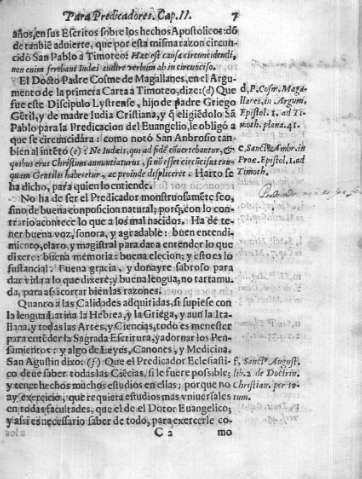 Para Predicadores. Cap. II. 7
años, en sus Escritos sobre los hechos Apostolicos: dõ
de tambiē advierte, que por esta misma razon circun-
cidó San Pablo à Timoteo: Haec est causa circumcidendi,
non enim ferebant Iudei audire verbum ab incirconciso.
El Docto Padre Cosme de Magallanes, en el Argu-
mento de la primera Carta à Timoteo, dize: (d) Que
fue este Discipulo Lystrense, hijo de padre Griego
Gētil, y de madre Iudia Cristiana, y q̄ eligiēdolo San
Pablo para la Predicacion del Euangelio, le obligó a
que se circuncidára: como notó San Anbrosio tan-
bien al intēto (e): Ne Iudeis, qui ad fidē
quibus erat Christum annuntiaturus, si nō esset circucisus
quam Gentilis haberetur, ac proinde displiceret. Harto se
ha dicho, para quien lo entiende.
No ha de ser el Predicador monstruosamēte feo,
sino de buena conposicion natural; porq̄, con lo con-
trario acontece lo que a los mal nacidos. Ha de te-
ner buena voz, sonora, y agradable: buen entendi-
miento, claro, y magistral para dar a entender lo que
dixere: buena memoria: buena elecion; y esto es lo
sustancial: Buena gracia, y donayre sabroso para
dar vida a lo que dixere; y buena lengua, no tartamu-
da, para assi cortar bien las razones.
Quanto à las Calidades adquiridas, si supiese con
la lengua Latina la Hebrea, y la Griega, y aun la Ita-
liana, y todas las Artes, y Ciencias, todo es menester
para entēder la Sagrada Escritura, y adornar los Pen-
samientos: y algo de Leyes, Canones, y Medicina.
San Agustin dixo: (f) Que el Predicador Eclesiasti-
co deue saber todas las Ciēcias, si le fuere possible;
y tener hechos muchos estudios en ellas; porque no
ay exercicio, que requiera estudios mas vniuersales
en todas facultades, que el de el Dotor Euangelico;
y assi es necessario saber de todo, para exercerle co-
C 2 mo
d, P. Cosm. Ma
llares, in Argum,
Epistol. I. ad Ti-
moth. plana. 41.
e, Sanctꝰ Ambr. in
Proe. Epistol. I. ad
Timoth.
f, Sanctꝰ August.
lib. 2 de Doctrin.
Christian. per to-
tum.